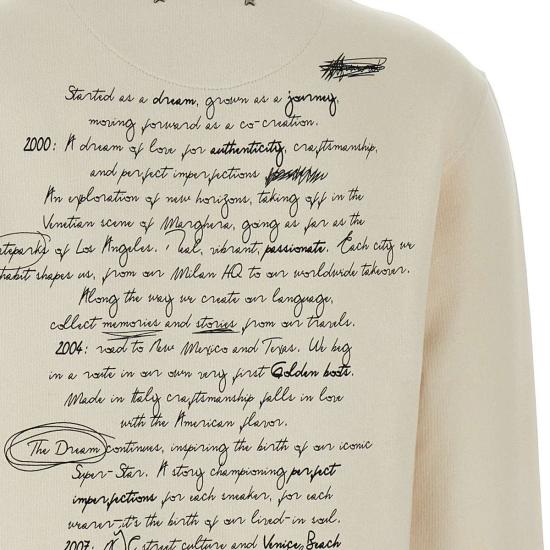 Started as a dream, grown as a journey,
moving forward as a co-creation.
2000: A dream of love for authenticity, craftsmanship,
and perfect imperfections
An exploration of new horizons, taking off in the
Venetian scene of Marghera, going as far as the
ateparks of Los Angeles. Real, vibrant, passionate. Each city we
habit shapes us, from our Milan HQ to our worldwide takeover.
Along the way we create our language,
collect memories and stories from our travels.
2004: road to New Mexico and Texas. We beg
in a route in our own very first Golden boots.
Made in Italy craftsmanship falls in love
with the American flavor.
The Dream continues, inspiring the birth of our iconic
Super-Star. A story championing perfect
imperfections for each sneaker, for each
wearer-it's the birth of our lived-in soul.
2007: street culture and Venice Beach